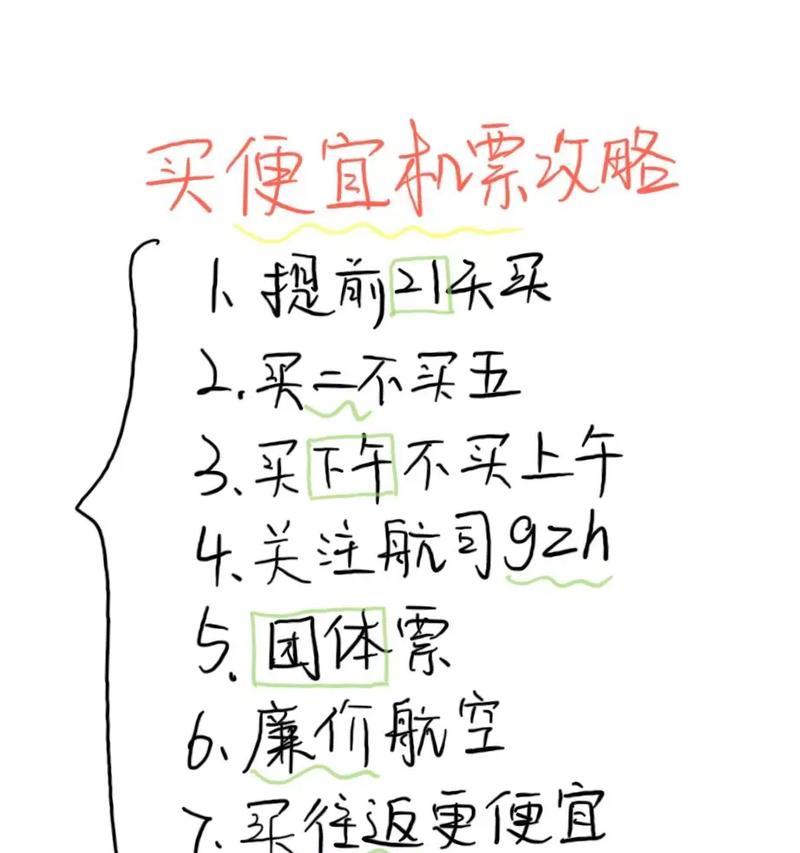 买便宜机票攻略
1、提前21天买
2.买二不买五
3、买下午不买上午
4、关注航司gzh
5.团体票
6、廉价航空
7、买往返更便宜